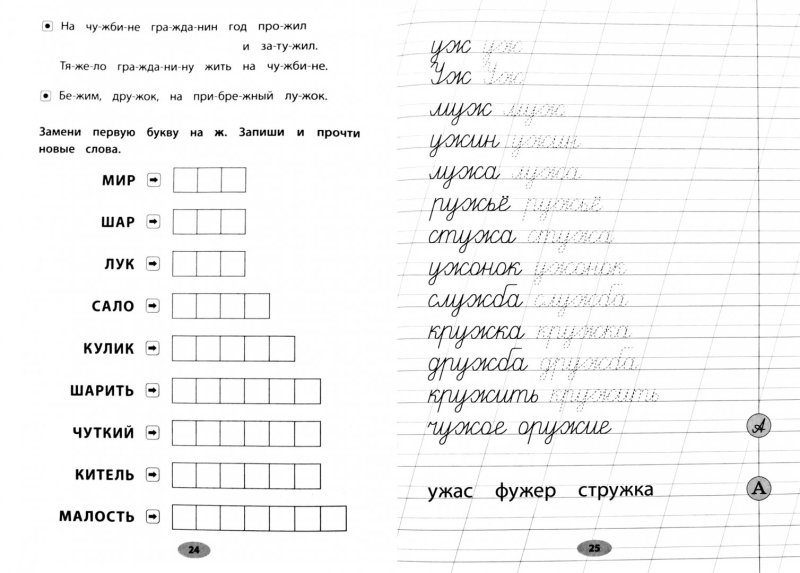 На чу-жби-не гра-жда-нин год про-жил
и за-ту-жил.
Тя-же-ло гра-жда-ни-ну жить на чу-жби-не.
Бе-жим, дру-жок, на при-бре-жный лу-жок.
Замени первую букву на ж. Запиши и прочти
новые слова.
МИР
ШАР
ЛУК
САЛО
КУЛИК
ШАРИТЬ
ЧУТКИЙ
КИТЕЛЬ
МАЛОСТЬ
24
уж уж
Уж Уж
муж муж
ужин ужин
лужа лужа
ружьё ружьё
стужа стужа
ужонок ужонок
служба служба
кружка кружка
дружба дружба
кружить кружить
чужое оружие
А
ужас фужер стружка
А
25